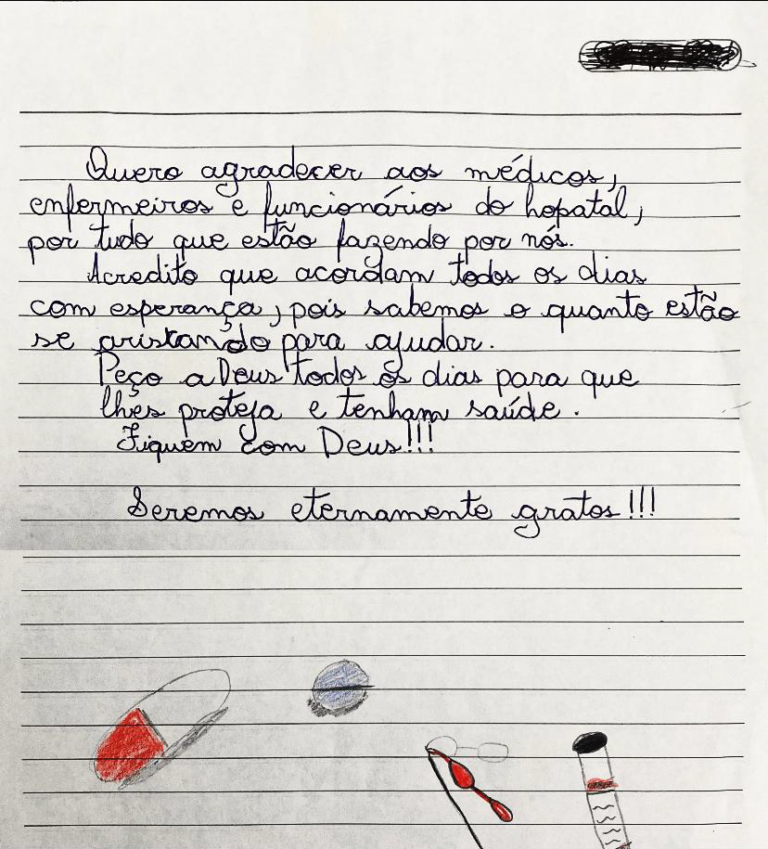 Quero agradecer aos médicos,
enfermeiros e funcionários do hopatal,
por tudo que estão fazendo por nós.
Acredito que acordam todos os dias
com esperança, pois sabemos o quanto estão
se ariscando para ajudar.
Peço a Deus todos os dias para que
lhes proteja e tenham saúde.
Fiquem com Deus!!!
Seremos eternamente gratos!!!